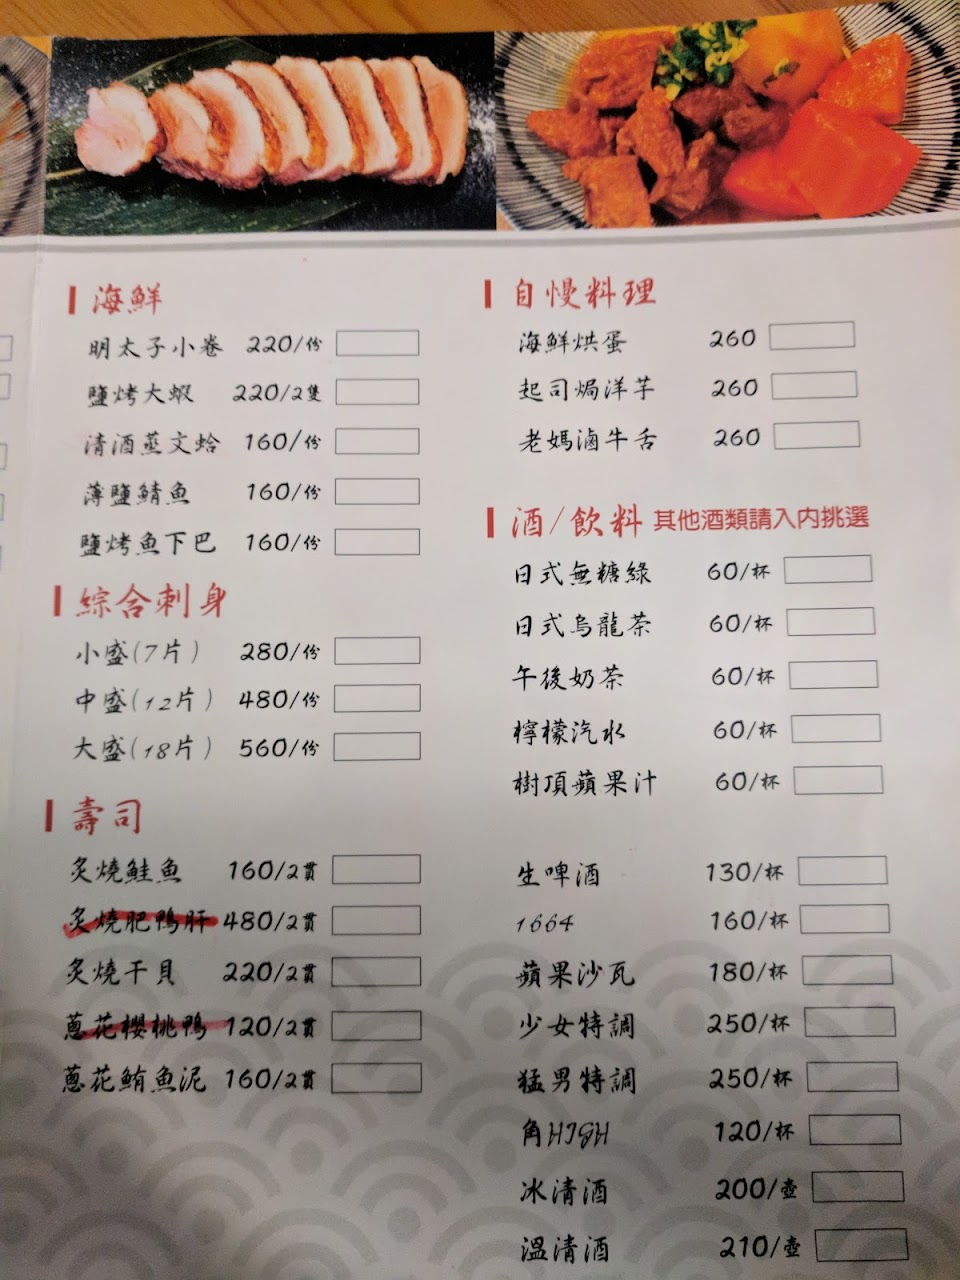 海鮮
明太子小卷 220/份
鹽烤大蝦 220/2隻
清酒蒸文蛤 160/份
薄鹽鯖魚 160/份
鹽烤魚下巴 160/份
綜合刺身
小盛(7片) 280/份
中盛(12片) 480/份
大盛(18片) 560/份
壽司
炙燒鮭魚 160/2貫
炙燒肥鴨肝 480/2貫
炙燒干貝 220/2貫
蔥花櫻桃鴨 120/2貫
蔥花鮪魚泥 160/2貫
自慢料理
海鮮烘蛋 260
起司焗洋芋 260
老媽滷牛舌 260
酒/飲料 其他酒類請入內挑選
日式無糖綠 60/杯
日式烏龍茶 60/杯
午後奶茶 60/杯
檸檬汽水 60/杯
樹頂蘋果汁 60/杯
生啤酒 130/杯
1664 160/杯
蘋果沙瓦 180/杯
少女特調 250/杯
猛男特調 250/杯
角HIGH 120/杯
冰清酒 200/壺
溫清酒 210/壺